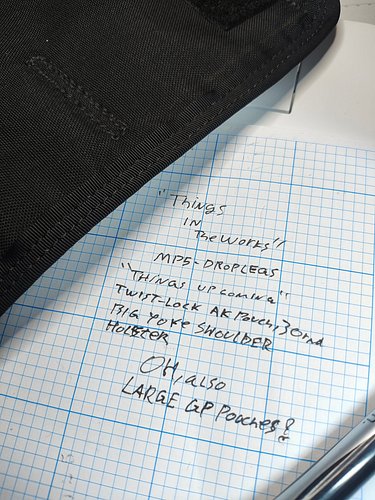 "Things
IN
The works"
MP5-DROPLEGS
"THINGS UPCOMING"
TWIST-LOCK AK Pouch,
BIG YOKE SHOULDER
HOLSTER
OH, also
LARGE GP Pouches?